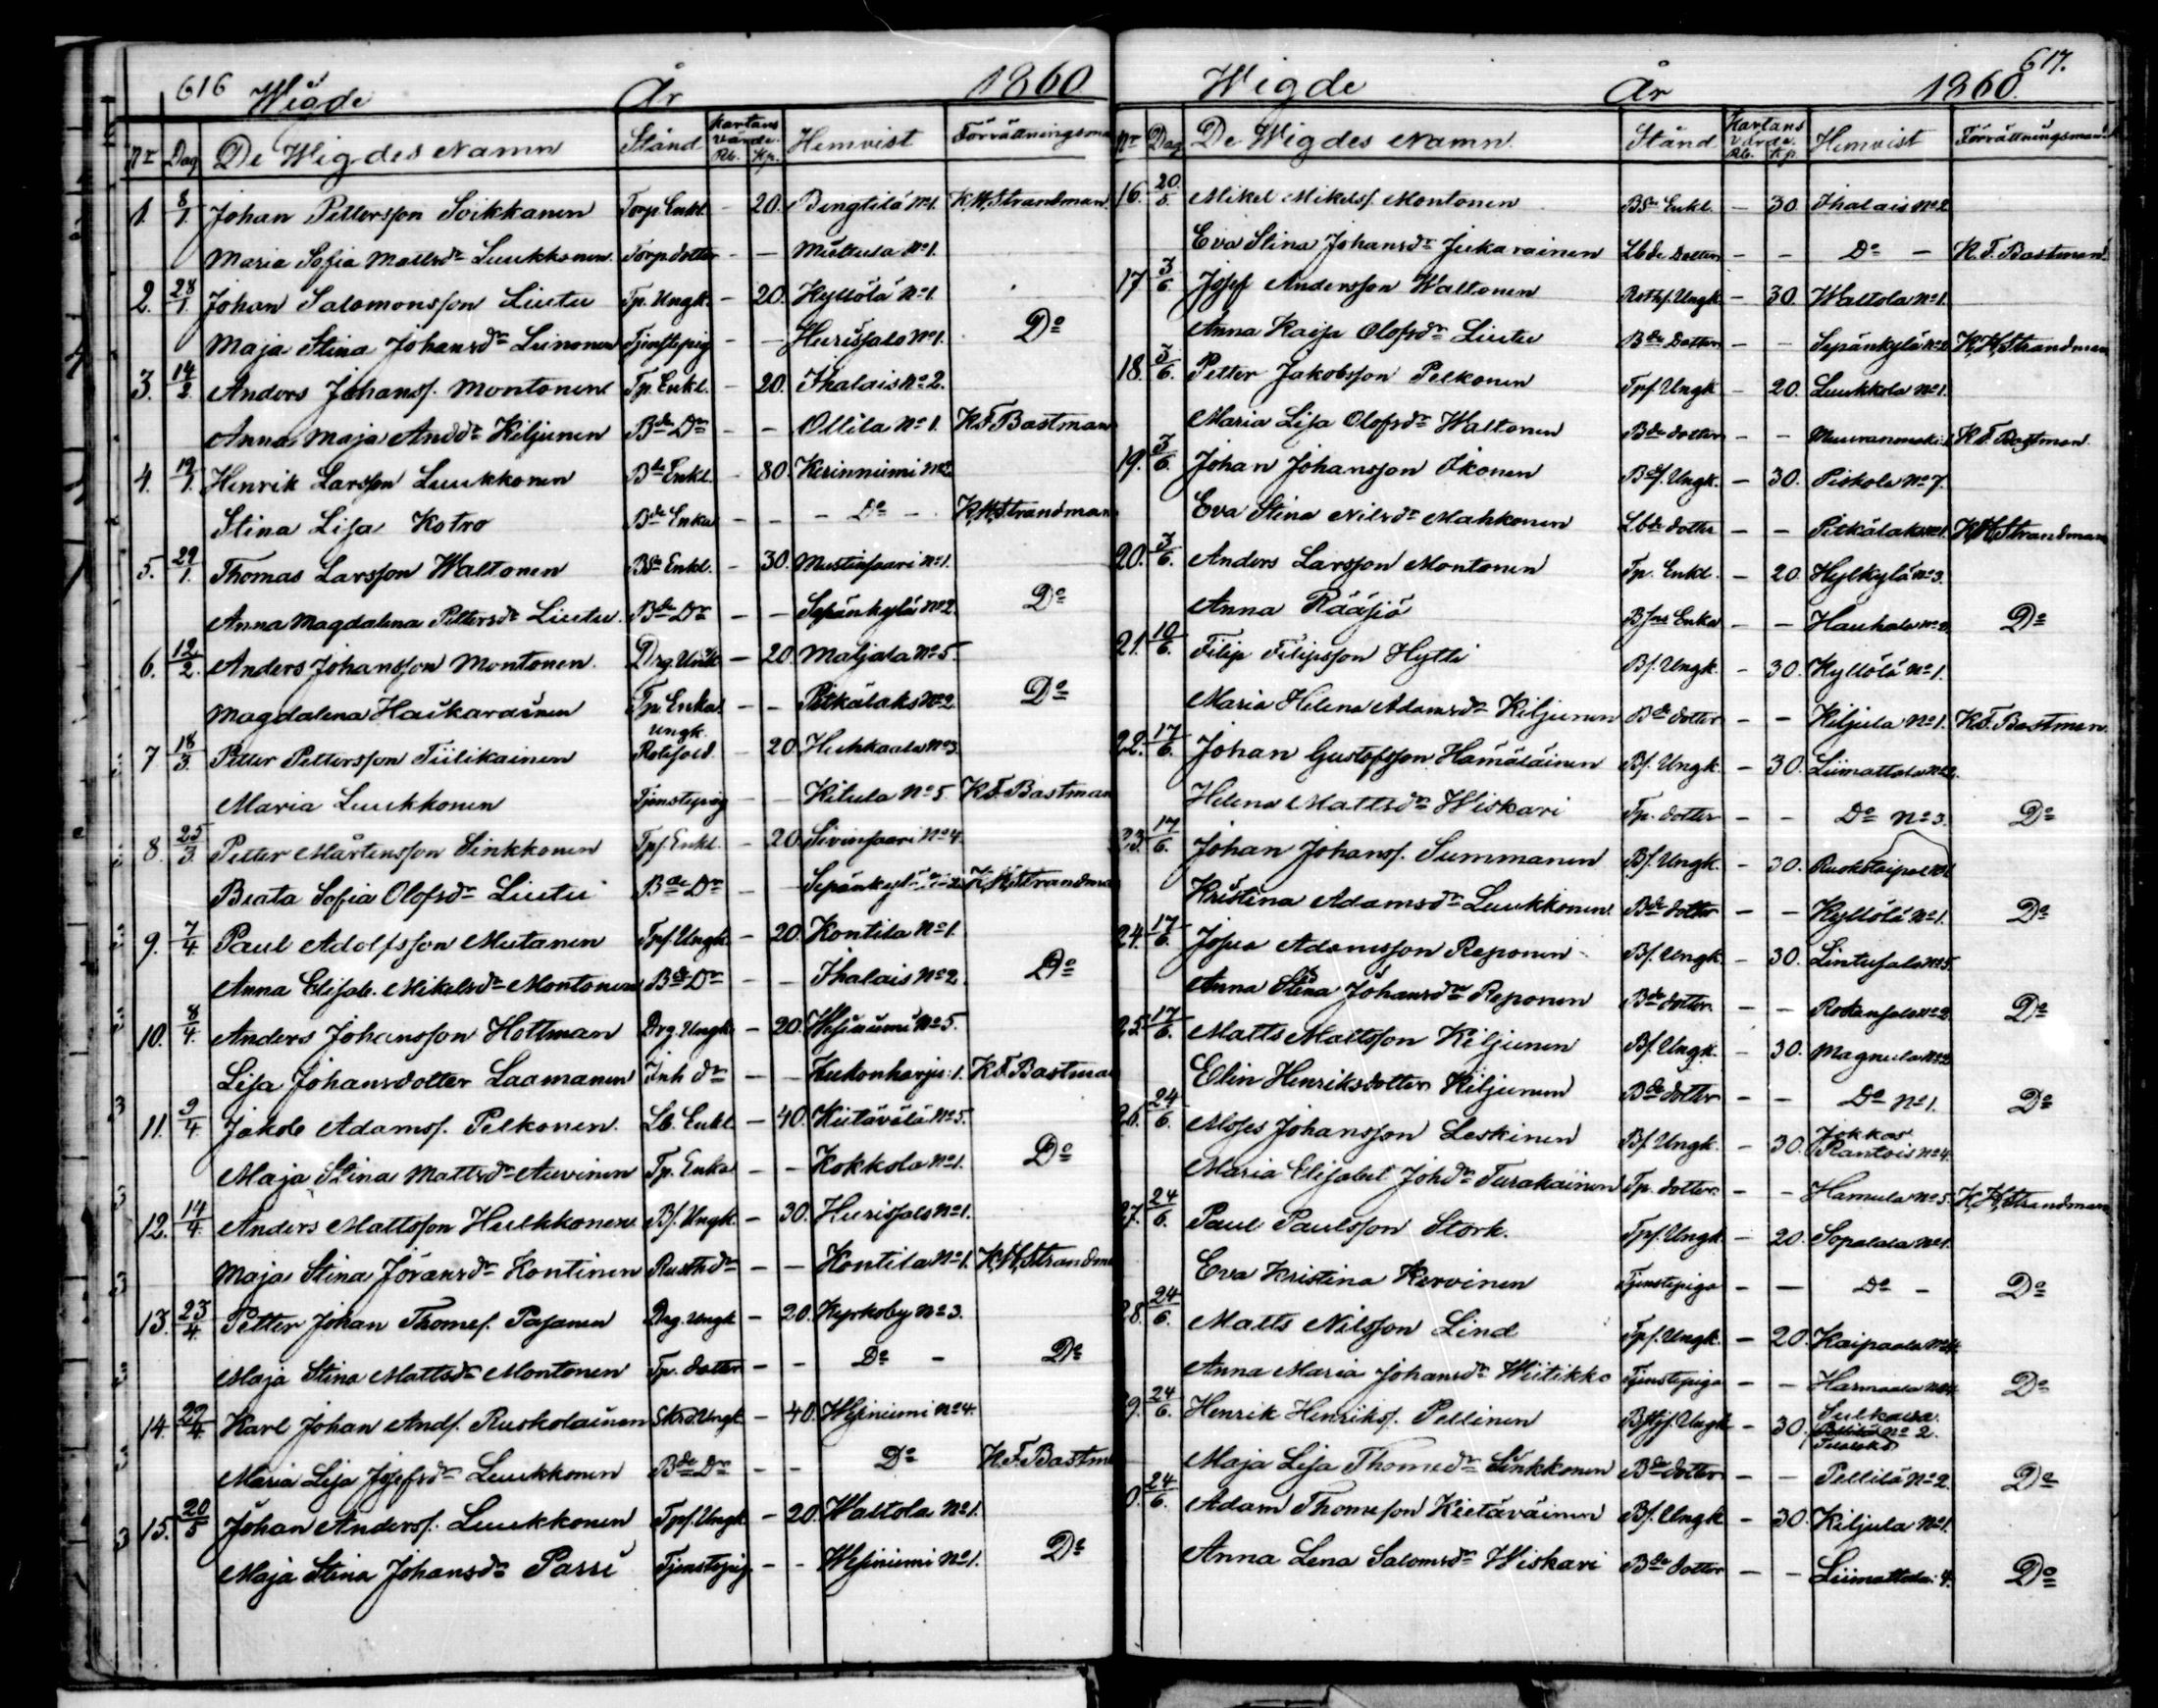 616 Wigde År 1860
Nr Dag De Wigdes Namn Stånd Kartans värde. Rb. Kp. Hemvist Förrättningsma
1. 8/1. Johan Pettersson Soikkanen Torp. Enkl. - 20. Bengtilä No 1. K.H. Strandman.
Maria Sofia Mattsdr Luukkonen. Torp dotter - - Multula No 1.
2. 28/1. Johan Salomonsson Liutu Tp. Ungk. - 20. Kyllölä No 1.
Maja Stina Johansdr Liinonen Tjenstepig - - Hurissalo No 1. Do
3. 14/2. Anders Johanss. Montonen Tp. Enkl. - 20. Ihalais No 2.
Anna Maja Andsdr Kiljunen Bde Dr - - Ollila No 1. K.F. Bastman
4. 19/1. Henrik Larsson Luukkonen Bde Enkl. - 80. Kerinniimi No 2
Stina Lisa Kotro Bde Enka - - - Do - K.H. Strandman
5. 29/1. Thomas Larsson Waltonen Bde Enkl. - 30. Mustinsaari No 1.
Anna Magdalena Pettersdr Liutu. Bde Dr - - Sepänkylä No 2. Do
6. 12/2. Anders Johansson Montonen. Drg. Unk - 20. Matjala No 5.
Magdalena Haikarainen Tp. Enka. - - Pitkälaks No 2 Do
7 18/3. Petter Pettersson Tiilikainen Ungk. Rotesold. - 20. Huhkaala No 3.
Maria Luukkonen Tjenstepig - - Kitula No 5. K.F. Bastman
8. 25/3. Petter Mårtensson Sinkkonen Tps. Enkl. - 20. Sivinsaari No 4.
Beata Sofia Olofsdr Liutu Bde Dr - - Sepänkylä No 2 K.H. Strandma
9. 7/4 Paul Adolfsson Mutanen Tps. Ungk. - 20. Kontila No 1.
Anna Elisab. Mikelsdr Montonen Bde Dr - - Ihalais No 2. Do
10. 8/4. Anders Johansson Holtman Drg. Ungk. - 20. Wesiniimi No 5.
Lisa Johansdotter Laamanen Inh dr - - Kukonharju: 1. K.F. Bastma
11. 9/4. Jakob Adamss. Pelkonen. Lb. Enkl. - 40. Kiitävälä No 5.
Maja Stina Mattsdr Auvinen Tp. Enka - - Kokkola No 1. Do
12. 14/4. Anders Mattsson Hulkkonen. Bs. Ungk. - 30. Hurissalo No 1.
Maja Stina Jöransdr Kontinen Rusth dr - - Kontila No 1. K.H. Strandm
13. 23/4. Petter Johan Thomes. Pajanen Drg. Ungk - 20. Kyrkoby No 3.
Maja Stina Mattsdr Montonen Tp. dotter - - Do - Do
14. 29/4. Karl Johan Ands. Ruskolainen Skrd. Ungk - 40. Wesiniimi No 4.
Maria Lisa Josefsdr Luukkonen Bde Dr - - Do K.F. Bastm
15. 20/5 Johan Anderss. Luukkonen Tps. Ungk. - 20. Waltola No 1.
Maja Stina Johansdr Parri Tjenstepig. - - Wesiniimi No 1. Do
617.
Wigde År 1860.
Nr Dag De Wigdes Namn. Stånd Kartans värde. Rb. Kp Hemvist Förrättningsman
16. 20/5. Mikel Mikelss. Montonen Bde Enkl. - 30. Ihalais No 2
Eva Stina Johansdr Jukarainen Lbde Dotter - - Do - K.F. Bastman.
17 3/6. Josef Andersson Waltonen Rusths. Ungk - 30. Waltola No 1.
Anna Kaisa Olofsdr Liutu Bde Dotter - - Sepänkylä No 2 K.H. Strandman
18. 3/6. Petter Jakobsson Pelkonen Tps. Ungk - 20. Luukkola No 1.
Maria Lisa Olofsdr Waltonen Bde dotter - - Muuranmäki: K.F. Bastman.
19. 3/6. Johan Johansson Ikonen Bds. Ungk. - 30. Piskola No 7.
Eva Stina Nilsdr Mahkonen Lbde dotter - - Pitkälaks No 1. K.H. Strandman
20. 3/6. Anders Larsson Montonen Tp. Enkl. - 20. Hylkylä No 3.
Anna Rääsjö Bsns Enka - - Hauhala No Do
21. 10/6. Filip Filipsson Hytti Bs. Ungk. - 30. Kyllölä No 1.
Maria Helena Adamsdr Kiljunen Bde dotter - - Kiljula No 1. K.F. Bastman.
22. 17/6. Johan Gustafsson Hämäläinen Bs. Ungk. - 30. Liimattala No 2.
Helena Mattsdr Wiskari Tp. dotter - - Do No 3. Do
23. 17/6. Johan Johanss. Summanen Bs. Ungk. - 30.
Kristina Adamsdr Luukkonen. Bde dotter - - Kyllölä No 1. Do
24. 17/6. Josua Adamsson Reponen Bs. Ungk - 30. Lintusalo No 5.
Anna Stina Johansdr Reponen Bde dotter - - Rokansalo No 2. Do
25. 17/6. Matts Mattsson Kiljunen Bs. Ungk. - 30. Magnula No 2
Elin Henriksdotter Kiljunen Bde dotter - - Do No 1. Do
26. 24/6. Moses Johansson Leskinen Bs. Ungk. - 30. Jokkas Rantois No 4.
Maria Elisabet Johdr Turakainen Tp. dotter. - - Hamula No 5. K.H. Strandman
27. 24/6. Paul Paulsson Stork. Tps. Ungk - 20. Sopalala No 1.
Eva Kristina Kervinen Tjenstepiga - - Do - Do
28. 24/6. Matts Nilsson Lind Tps. Ungk. - 20. Kaipaala No 4.
Anna Maria Johansdr Wiitikko Tjenstepiga - - Harmaala No Do
9. 24/6. Henrik Henrikss. Pellinen Ungk - 30. Sulkava. No 2.
Maja Lisa Thomedr Sinkkonen Bde dotter - - Pellilä No 2. Do
0. 24/6. Adam Thomesson Kietäväinen Bs. Ungk - 30. Kiljula No 1.
Anna Lena Salomsdr Wiskari Bde dotter - - Liimattala: 4. Do